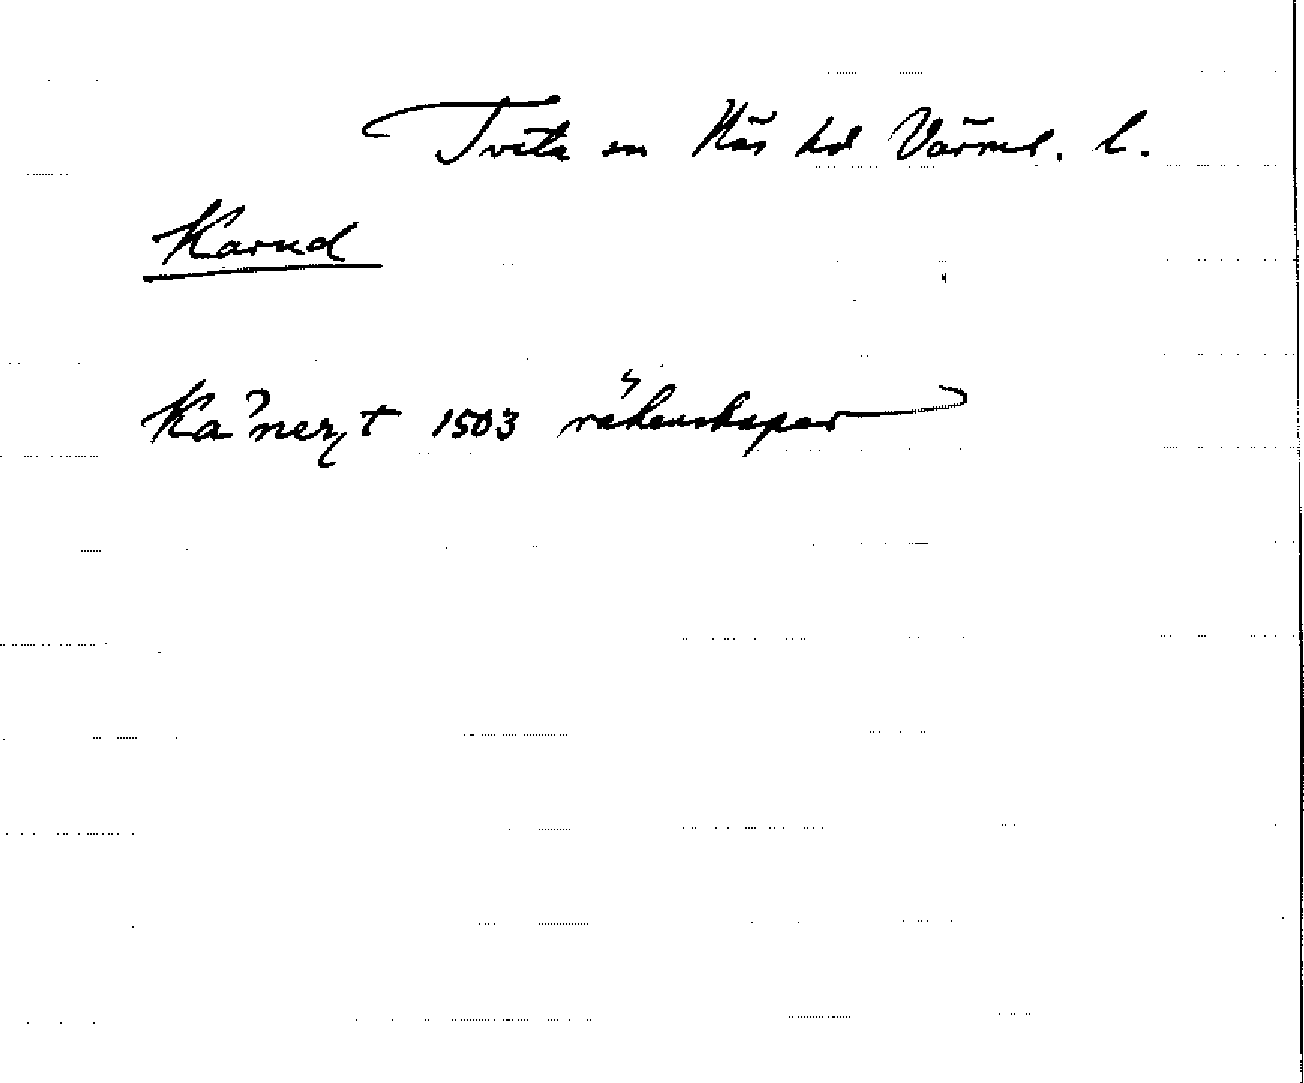 Tveta sn Näs hd Värml. l.
Karud
Ka²nerͅt 1503 räkenskaper